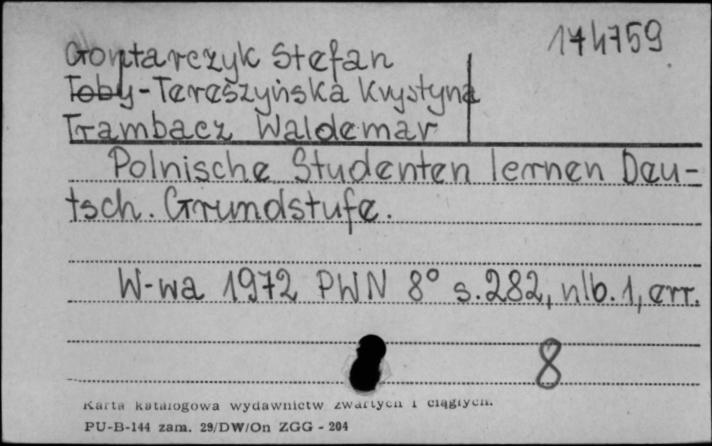 174759
Gontarczyk Stefan
Toby-Tereszyńska Krystyna
Trambacz Waldemar
Polnische Studenten lernen Deu-
tsch. Grundstufe.
W-wa 1972 PWN 8° s. 282, nlb. 1, err.
8
Karta katalogowa wydawnictw zwartych i ciągłych.
PU-B-144 zam. 29/DW/On ZGG - 204